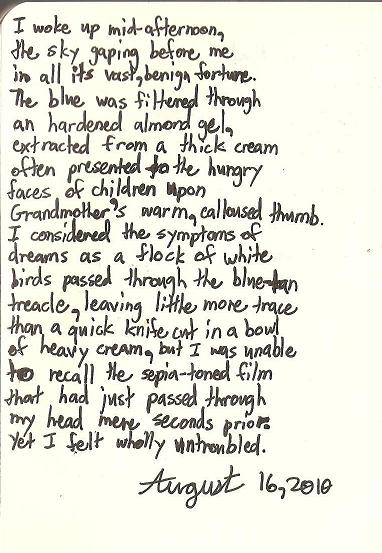 I woke up mid-afternoon,
the sky gaping before me
in all its vast, benign fortune.
The blue was filtered through
an hardened almond gel,
extracted from a thick cream
often presented to the hungry
faces of children upon
Grandmother's warm, calloused thumb.
I considered the symptoms of
dreams as a flock of white
birds passed through the blue-tan
treacle, leaving little more trace
than a quick knife cut in a bowl
of heavy cream, but I was unable
to recall the sepia-toned film
that had just passed through
my head mere seconds prior.
Yet I felt wholly untroubled.
August 16, 2010